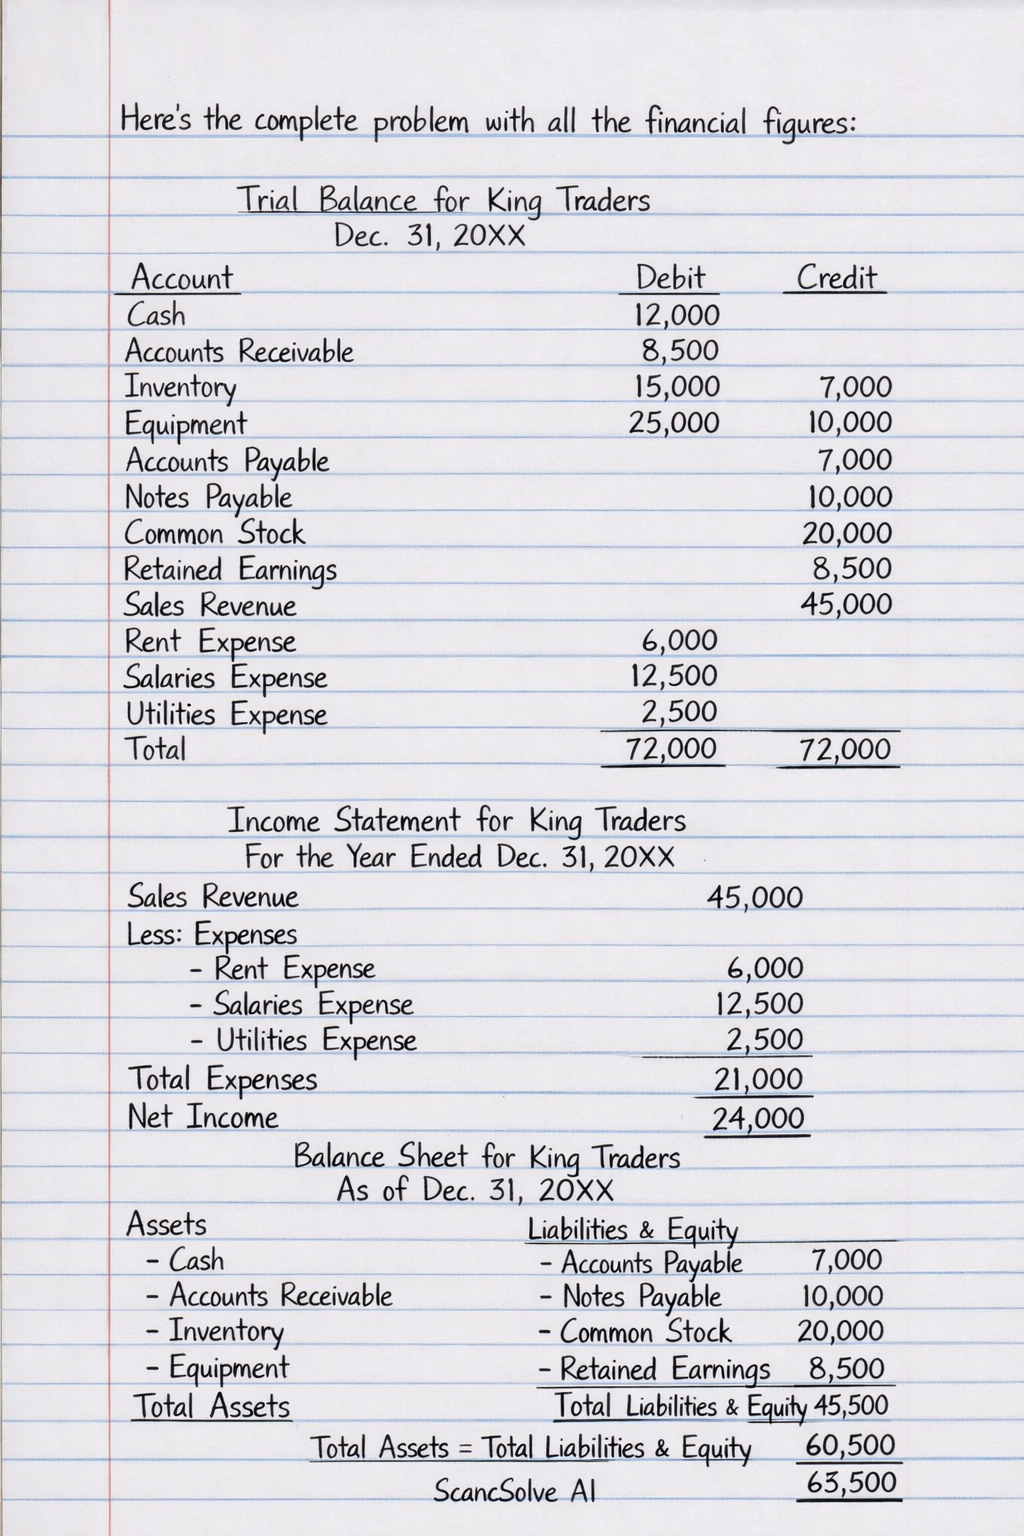 Here's the complete problem with all the financial figures:
Trial Balance for King Traders
Dec. 31, 20XX
Account Debit Credit
Cash 12,000
Accounts Receivable 8,500
Inventory 15,000 7,000
Equipment 25,000 10,000
Accounts Payable 7,000
Notes Payable 10,000
Common Stock 20,000
Retained Earnings 8,500
Sales Revenue 45,000
Rent Expense 6,000
Salaries Expense 12,500
Utilities Expense 2,500
Total 72,000 72,000
Income Statement for King Traders
For the Year Ended Dec. 31, 20XX
Sales Revenue 45,000
Less: Expenses
- Rent Expense 6,000
- Salaries Expense 12,500
- Utilities Expense 2,500
Total Expenses 21,000
Net Income 24,000
Balance Sheet for King Traders
As of Dec. 31, 20XX
Assets Liabilities & Equity
- Cash - Accounts Payable 7,000
- Accounts Receivable - Notes Payable 10,000
- Inventory - Common Stock 20,000
- Equipment - Retained Earnings 8,500
Total Assets Total Liabilities & Equity 45,500
Total Assets = Total Liabilities & Equity 60,500
ScancSolve AI 63,500